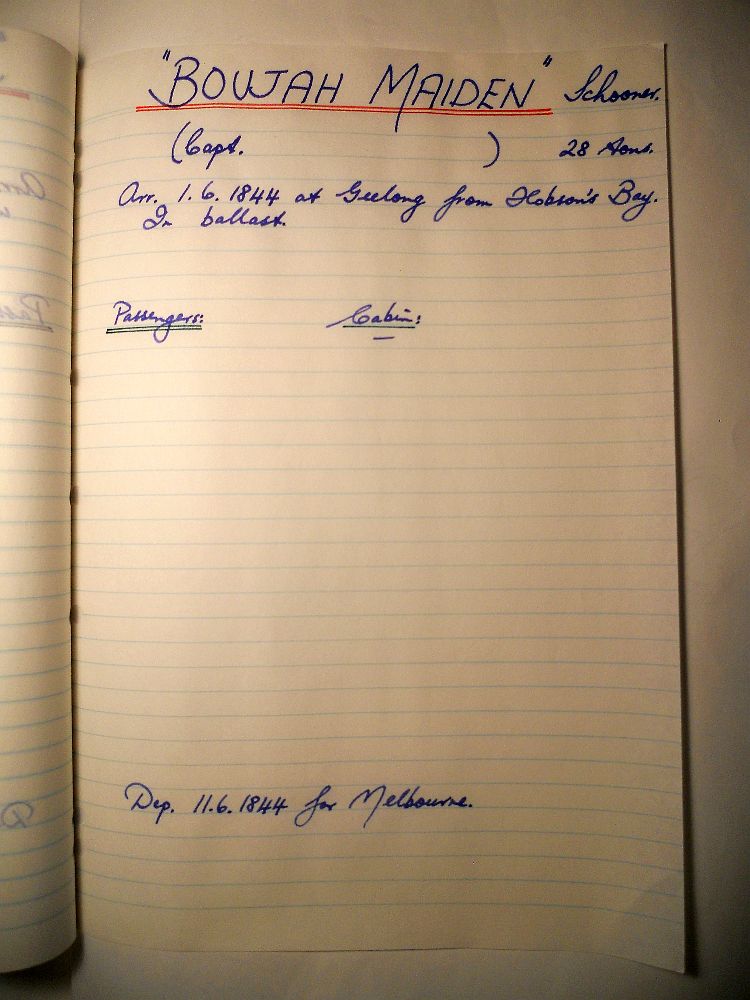 "BOUJAH MAIDEN" Schooner.
(Capt. ) 28 tons.
Arr. 1.6.1844 at Geelong from Hobson's Bay.
In ballast.
Passengers: Cabin:
—
Dep. 11.6.1844 for Melbourne.